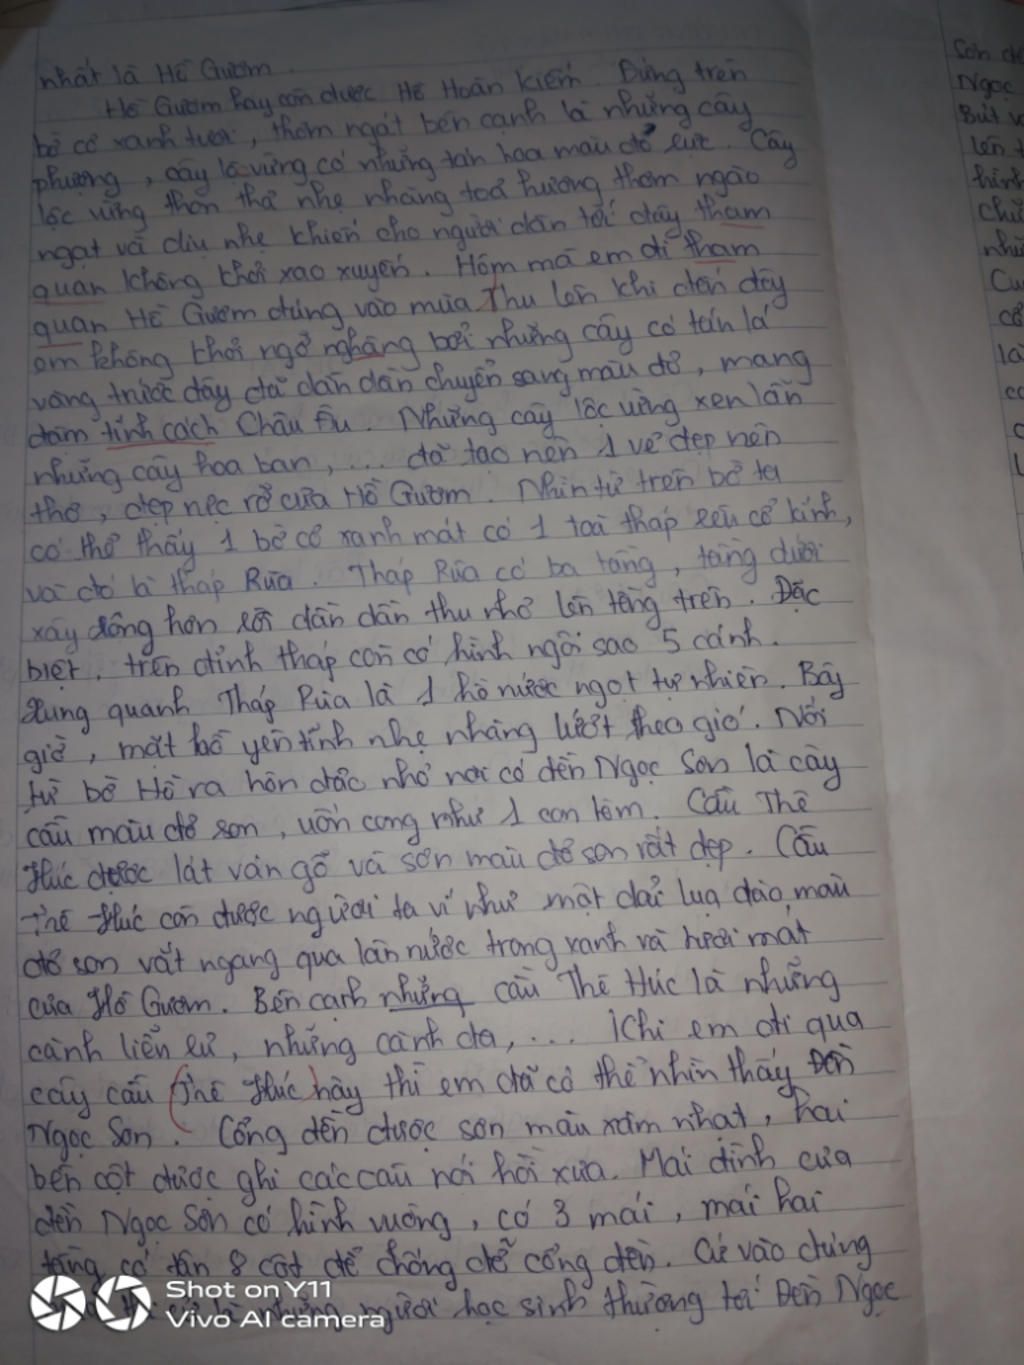 nhất là Hồ Gươm.
Hồ Gươm hay còn được Hồ Hoàn Kiếm. Đứng trên
bờ cỏ xanh tươi, thơm ngát bên cạnh là những cây
phượng, cây lộc vừng có những tán hoa màu đỏ rực. Cây
lộc vừng thon thả nhẹ nhàng toả hương thơm ngào
ngạt và dịu nhẹ khiến cho người dân tới đây tham
quan không khỏi xao xuyến. Hôm mà em đi tham
quan Hồ Gươm đúng vào mùa Thu lên khi đến đây
em không khỏi ngỡ nghàng bởi những cây có tán lá
vàng trước đây đã dần dần chuyển sang màu đỏ, mang
đậm tính cách Châu Âu. Những cây lộc vừng xen lẫn
những cây hoa ban, ... đã tạo nên 1 vẻ đẹp nên
thơ, đẹp rực rỡ của Hồ Gươm. Nhìn từ trên bờ ta
có thể thấy 1 bờ cỏ xanh mát có 1 toà tháp rêu cổ kính,
và đó là tháp Rùa. Tháp Rùa có ba tầng, tầng dưới
xây rộng hơn rồi dần dần thu nhỏ lên tầng trên. Đặc
biệt, trên đỉnh tháp còn có hình ngôi sao 5 cánh.
Xung quanh Tháp Rùa là 1 hồ nước ngọt tự nhiên. Bây
giờ, mặt hồ yên tĩnh nhẹ nhàng lướt theo gió. Nối
từ bờ Hồ ra hòn đảo nhỏ nơi có đền Ngọc Sơn là cây
cầu màu đỏ son, uốn cong như 1 con tôm. Cầu Thê
Húc được lát ván gỗ và sơn màu đỏ son rất đẹp. Cầu
Thê Húc còn được người ta ví như một dải lụa đào, màu
đỏ son vắt ngang qua làn nước trong xanh và tươi mát
của Hồ Gươm. Bên cạnh những cầu Thê Húc là những
cành liễu rủ, những cành đa, ... Khi em đi qua
cây cầu Thê Húc này thì em đã có thể nhìn thấy Đền
Ngọc Sơn. Cổng đền được sơn màu xám nhạt, hai
bên cột được ghi các câu nói hồi xưa. Mái đình của
đền Ngọc Sơn có hình vuông, có 3 mái, mái hai
tầng có tận 8 cột để chống đỡ cổng đền. Cứ vào đúng
những người học sinh thường tới Đền Ngọc
Shot on Y11
Vivo AI camera
Sơn
Ngọc
Bút
lên
hình